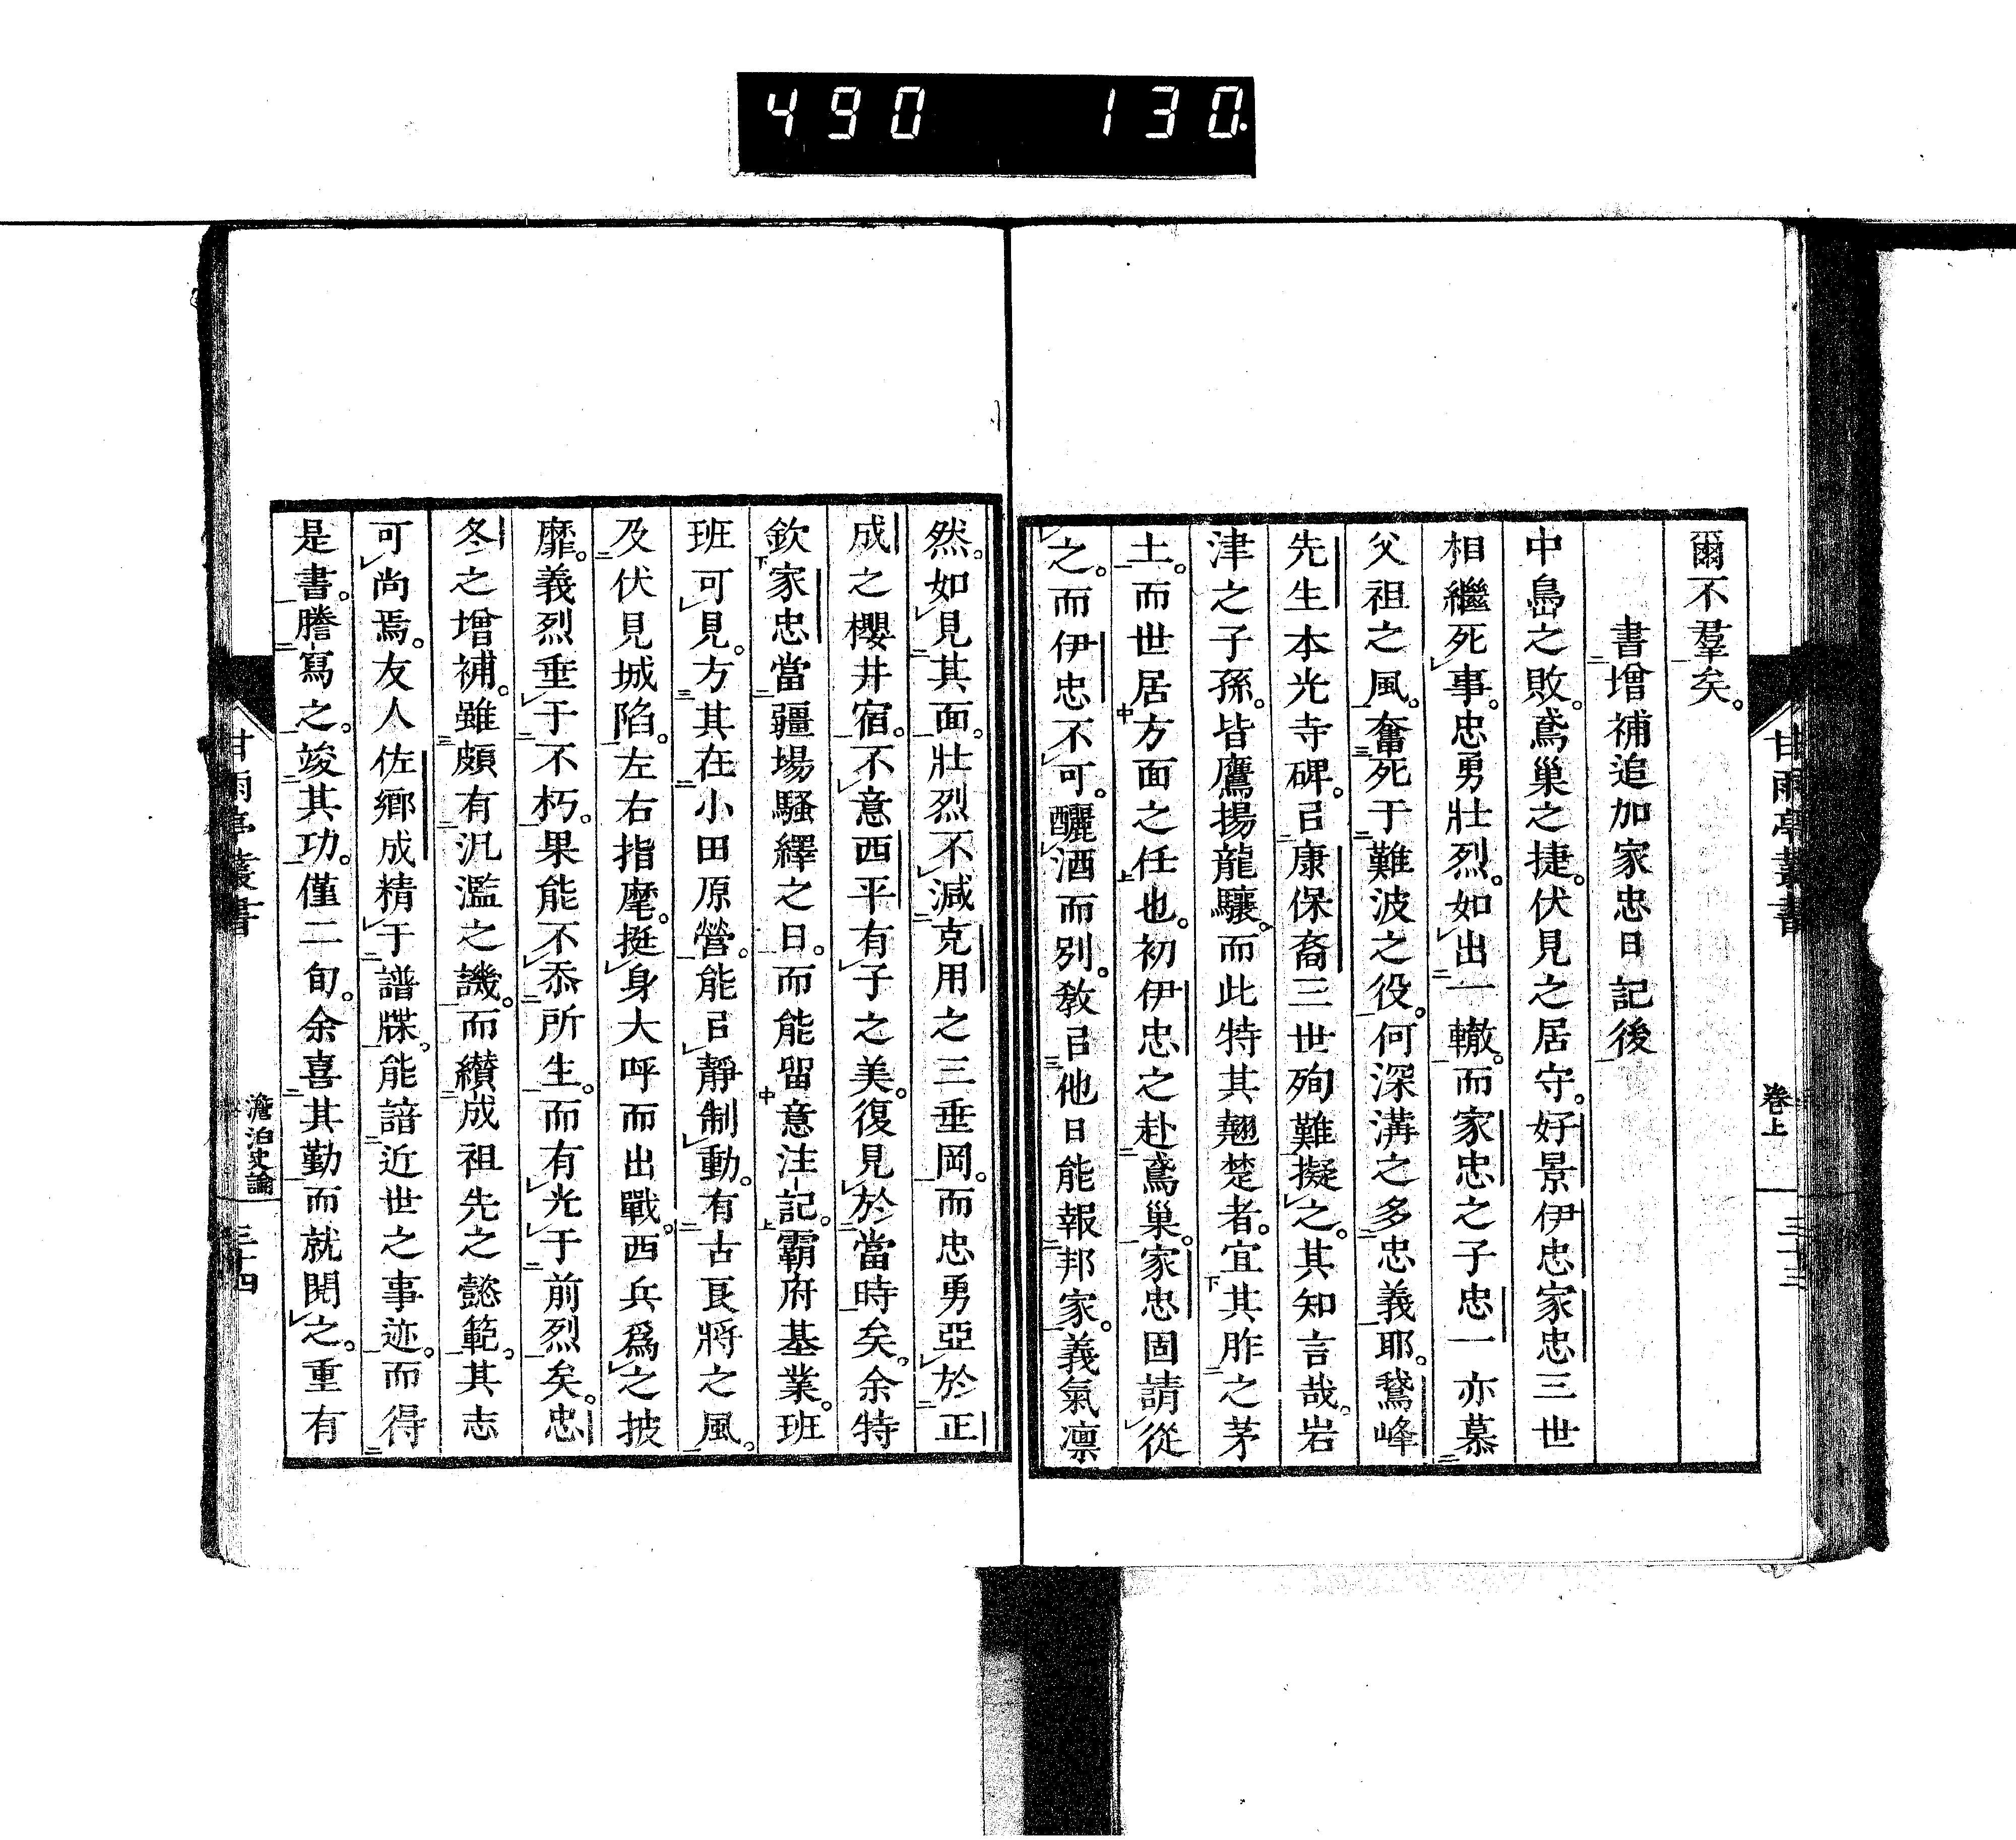 490 130.
甘雨亭叢書 卷上 三十三
爾不羣矣。
書增補追加家忠日記後
中島之敗。鳶巢之捷。伏見之居守。好景伊忠家忠三世
相繼死事。忠勇壯烈。如出一轍。而家忠之子忠一亦慕
父祖之風。奮死于難波之役。何深溝之多忠義耶。鵞峰
先生本光寺碑。㠯康保裔三世殉難擬之。其知言哉。岩
津之子孫。皆鷹揚龍驤。而此特其翹楚者。宜其胙之茅
土。而世居方面之任也。初伊忠之赴鳶巢。家忠固請從
之。而伊忠不可。釃酒而別。敎㠯他日能報邦家。義氣凛
然。如見其面。壯烈不減克用之三垂岡。而忠勇亞於正
成之櫻井宿。不意西平有子之美。復見於當時矣。余特
欽家忠當疆場騷繹之日。而能留意注記。霸府基業。班
班可見。方其在小田原營。能㠯靜制動。有古良將之風。
及伏見城陷。左右指麾。挺身大呼而出戰。西兵爲之披
靡。義烈垂于不朽。果能不忝所生。而有光于前烈矣。忠
冬之增補。雖頗有汎濫之譏。而纉成祖先之懿範。其志
可尚焉。友人佐鄉成精于譜牒。能諳近世之事迹。而得
是書。謄寫之。竣其功。僅二旬。余喜其勤而就閱之。重有
甘雨亭叢書 澹泊史論 三十四